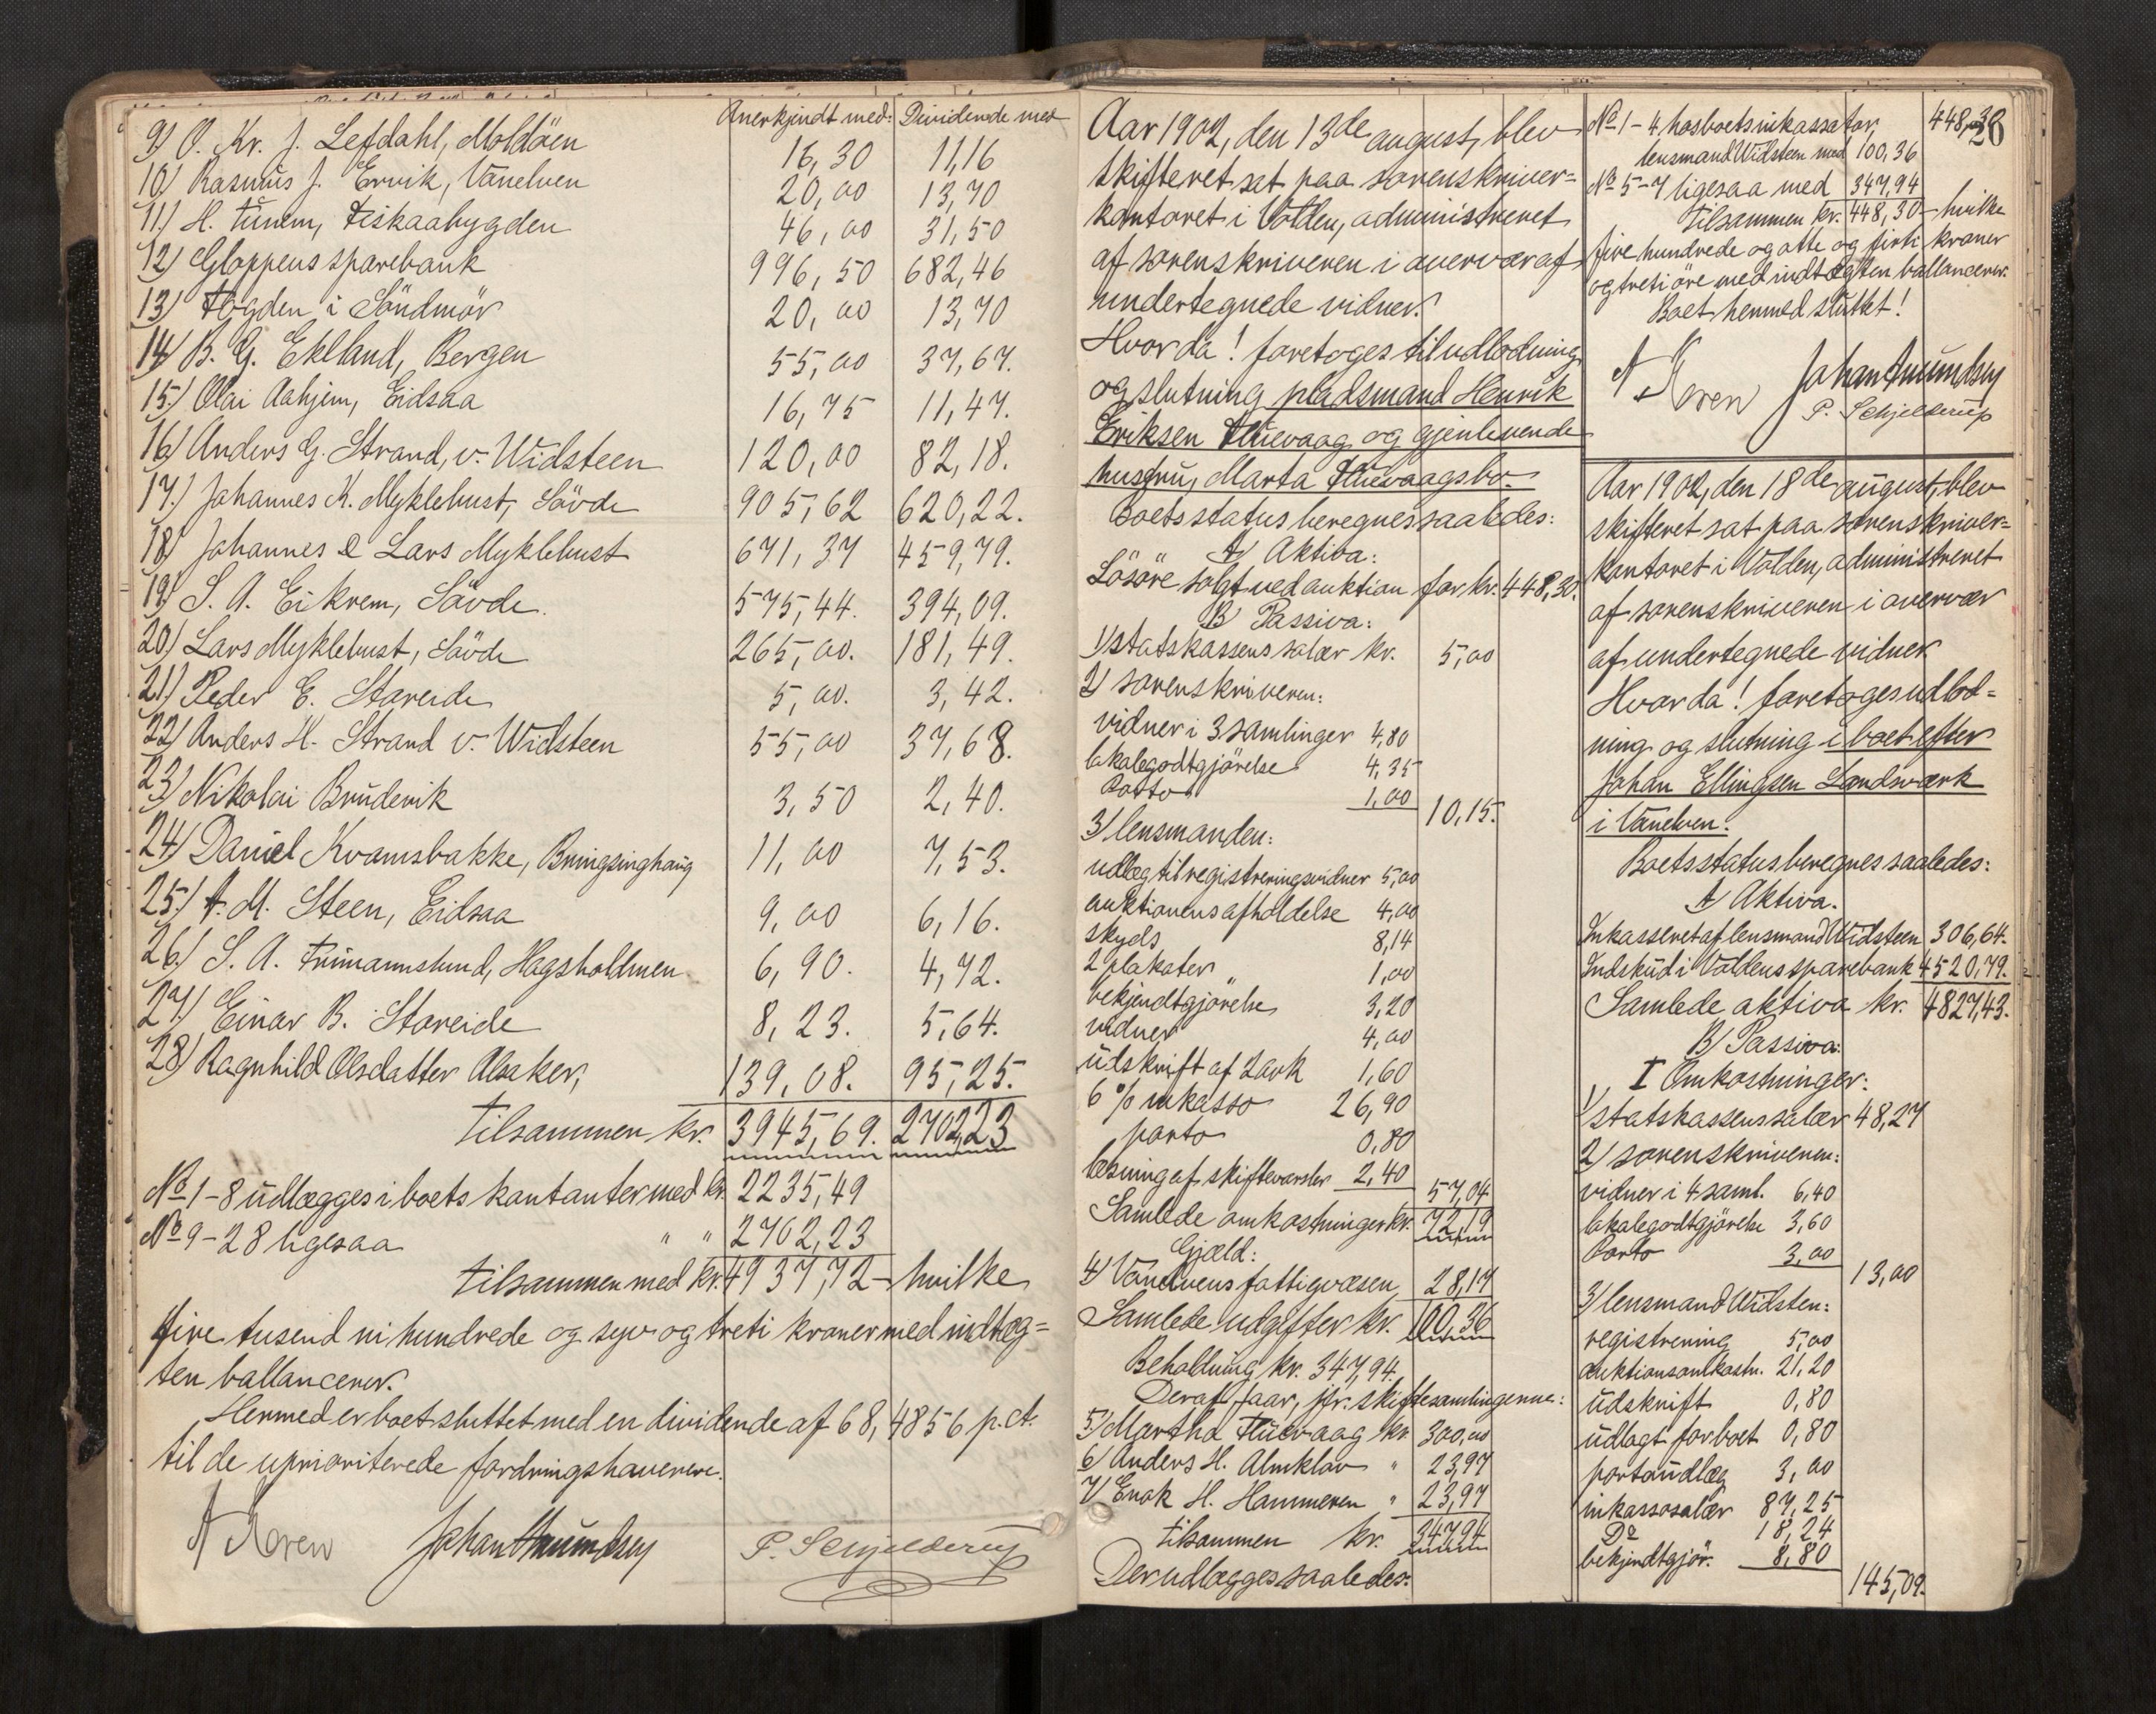 Anerkjendt med: Dividende med
9) O. Kr. J. Lefdahl, Moldöen 16,30 11,16
10) Rasmus J. Ervik, Vanelven 20,00 13,70
11.) H. Tunem, Fiskaabygden 46,00 31,50
12) Gloppens sparebank 996,50 682,46
13) Fogden i Söndmör 20,00 13,70
14) B. G. Ekland, Bergen 55,00 37,67.
15.) Olai Aahjem, Eidsaa 16,75 11,47.
16) Anders G. Strand, v. Widsteen 120,00 82,18.
17.) Johannes K. Myklebust, Sövde 905,62 620,22.
18) Johannes & Lars Myklebust 671,37 459,79.
19) S. A. Eikrem, Sövde. 575,44. 394,09.
20) Lars Myklebust, Sövde 265,00. 181,49.
21) Peder E. Stareide 5,00. 3,42.
22) Anders H. Strand v. Widsteen 55,00 37,68.
23) Nikolai Brudevik 3,50 2,40.
24) Daniel Kvamsbakke, Bringsinghaug 11,00 7,53.
25.) A. M. Steen, Eidsaa 9,00 6,16.
26.) S. A. Frimannslund, Hagsholmen. 6,90. 4,72.
27.) Einar B. Stareide 8,23. 5,64.
28) Ragnhild Olsdatter Alsaker, 139,08. 95,25.
Tilsammen kr. 3945,69. 2702,23
No 1-8 udlægges i boets kontanter med kr. 2235,49
No 9-28 ligesaa " " 2702,23
Tilsammen med kr. 4937,72 - hvilke
fire tusend ni hundrede og syv og treti kroner med indtæg=
ten ballancerer.
Hermed er boet sluttet med en dividende af 68,4856 p.ct.
til de uprioriterede fordringshavere.
A Koren Johan Amundsen P. Schjelderup
Aar 1902, den 13de august, blev
skifteret sat paa sorenskriver=
kontoret i Volden, administreret
af sorenskriveren i overvær af
undertegnede vidner.
Hvorda! foretoges til udlodning
og slutning pladsmand Henrik
Eriksen Fluevaag og gjenlevende
hustru, Marta Fluevaags bo.
Boets status beregnes saaledes:
A) Aktiva:
Lösöre solgt ved auktion for kr. 448,30.
B) Passiva:
1) statskassens salær kr. 5,00
2) sorenskriveren:
vidner i 3 samlinger 4,80
lokalegodtgjörelse 4,35
Porto 1,00 10,15.
3) lensmanden:
udlæg til registreringsvidner 5,00
auktionens afholdelse 4,00
skyds 8,14
2 plakater " 1,00
bekjendtgjörelse 3,20
vidner 4,00
udskrift af 2 ark 1,60
6 % inkasso 26,90
porto 0,80
læsning af skiftevarsler 2,40 57,04
Samlede omkostninger kr. 72,19
Gjæld:
4) Vanelvens fattigvæsen 28,17
Samlede udgifter kr. 100,36
Beholdning kr. 347,94.
Deraf faar, jfr. skiftesamlingerne:
5) Martha Fluevaag kr 300,00
6) Anders H. Almklov " 23,97
7) Enok H. Hammeren " 23,97
tilsammen kr. 347,94
Der udlægges saaledes:
448,30
No 1-4 hos boets inkassator,
lensmand Widsteen med 100,36
No 5-7 ligesaa med 347,94
Tilsammen kr. 448,30 - hvilke
fire hundrede og otte og firti kroner
og treti öre med indtægten ballancerer.
Boet hermed sluttet!
A Koren Johan Amundsen
P. Schjelderup
Aar 1902, den 18de august, blev
skifteret sat paa sorenskriver=
kontoret i Volden, administreret
af sorenskriveren i overvær
af undertegnede vidner
Hvorda! foretoges udlod=
ning og slutning i boet efter
Johan Ellingsen Landsværk
i Vanelven.
Boets status beregnes saaledes:
A) Aktiva.
Inkasseret af lensmand Widsteen 306,64.
Indskud i Voldens sparebank 4520,79.
Samlede aktiva kr. 4827,43.
B) Passiva:
I Omkostninger:
1) statskassens salær 48,27
2) sorenskriveren:
vidner i 4 saml. 6,40
lokalegodtgjörelse 3,60
Porto 3,00 13,00
3) lensmand Widsten:
registrering 5,00
auktionsomkostn. 21,20
udskrift 0,80
udlagt for boet 0,80
portoudlæg 3,00
inkassosalær 87,25
Do 18,24
bekjendtgjör. 8,80 145,09.